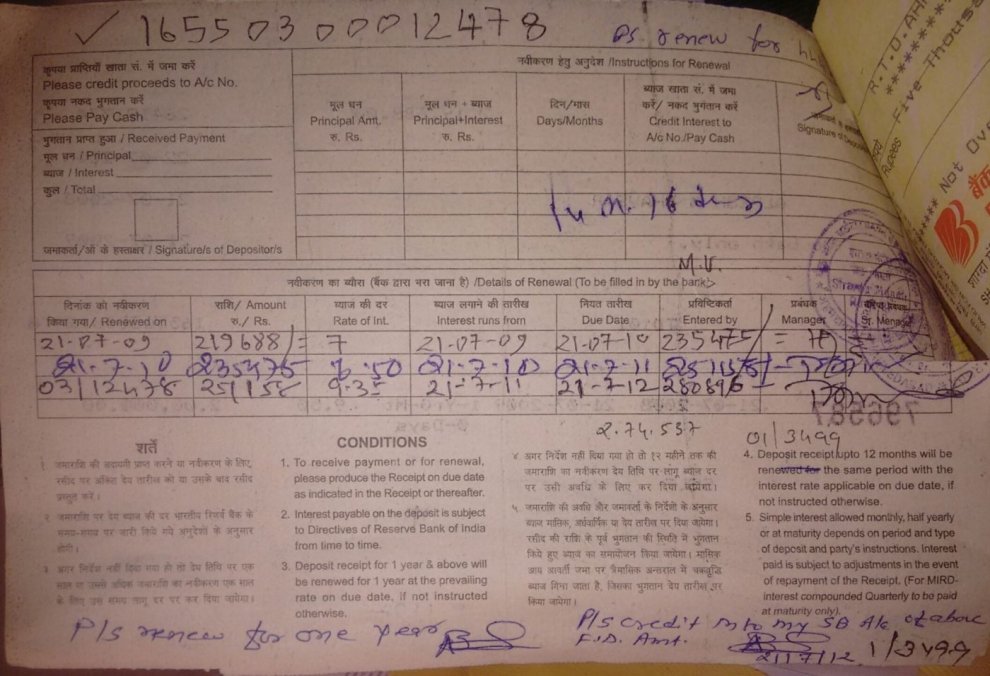 ✓ 16550300012478
Ps renew for
कृपया प्राप्तियाँ खाता सं. में जमा करें
Please credit proceeds to A/c No.
कृपया नकद भुगतान करें
Please Pay Cash
भुगतान प्राप्त हुआ / Received Payment
मूल धन / Principal
ब्याज / Interest
कुल / Total
जमाकर्ता/ओं के हस्ताक्षर / Signature/s of Depositor/s
नवीकरण हेतु अनुदेश /Instructions for Renewal
मूल धन
Principal Amt.
रु. Rs.
मूल धन + ब्याज
Principal+Interest
रु. Rs.
दिन/मास
Days/Months
ब्याज खाता सं. में जमा
करें/ नकद भुगतान करें
Credit Interest to
A/c No./Pay Cash
Signature of
R.T.D.
Rupees Five Thousa
Not Ove
M.V.
नवीकरण का ब्यौरा (बैंक द्वारा भरा जाना है) /Details of Renewal (To be filled in by the bank)
दिनांक को नवीकरण
किया गया/ Renewed on
राशि/ Amount
रु./ Rs.
ब्याज की दर
Rate of Int.
ब्याज लगाने की तारीख
Interest runs from
नियत तारीख
Due Date
प्रविष्टिकर्ता
Entered by
प्रबंधक
Manager
21-07-09 219688/= 7 21-07-09 21-07-10 235475/=
21-7-10 235475 21-7-10 21-7-11
03/12478 251158 9.35 21-7-11 21-7-12
2.74.537
01/3499
796587
शर्तें
१ जमाराशि की अदायगी प्राप्त करने या नवीकरण के लिए,
रसीद पर अंकित देय तारीख को या उसके बाद रसीद
प्रस्तुत करें।
२ जमाराशि पर देय ब्याज की दर भारतीय रिजर्व बैंक के
समय-समय पर जारी किये गये अनुदेशों के अनुसार
होगी।
३ अगर निर्देश नहीं दिया गया हो तो देय तिथि पर एक
साल या उससे अधिक जमाराशि का नवीकरण एक साल
के लिए उस समय लागू दर पर कर दिया जायेगा।
CONDITIONS
1. To receive payment or for renewal,
please produce the Receipt on due date
as indicated in the Receipt or thereafter.
2. Interest payable on the deposit is subject
to Directives of Reserve Bank of India
from time to time.
3. Deposit receipt for 1 year & above will
be renewed for 1 year at the prevailing
rate on due date, if not instructed
otherwise.
४ अगर निर्देश नहीं दिया गया हो तो १२ महीने तक की
जमाराशि का नवीकरण देय तिथि पर लागू ब्याज दर
पर उसी अवधि के लिए कर दिया जायेगा।
५ जमाराशि की अवधि और जमाकर्ता के निर्देश के अनुसार
ब्याज मासिक, अर्धवार्षिक या देय तारीख पर दिया जायेगा।
रसीद की राशि के पूर्व भुगतान की स्थिति में भुगतान
किये हुए ब्याज का समायोजन किया जायेगा। मासिक
आय आवर्ती जमा पर त्रैमासिक अन्तराल में चक्रवृद्धि
ब्याज गिना जाता है, जिसका भुगतान देय तारीख पर
किया जायेगा।
4. Deposit receipt upto 12 months will be
renewed for the same period with the
interest rate applicable on due date, if
not instructed otherwise.
5. Simple interest allowed monthly, half yearly
or at maturity depends on period and type
of deposit and party's instructions. Interest
paid is subject to adjustments in the event
of repayment of the Receipt. (For MIRD-
interest compounded Quarterly to be paid
at maturity only).
P/s renew for one year
P/s credit into my SB A/c of above
F.D. Amt.
21/7/12
1/3499